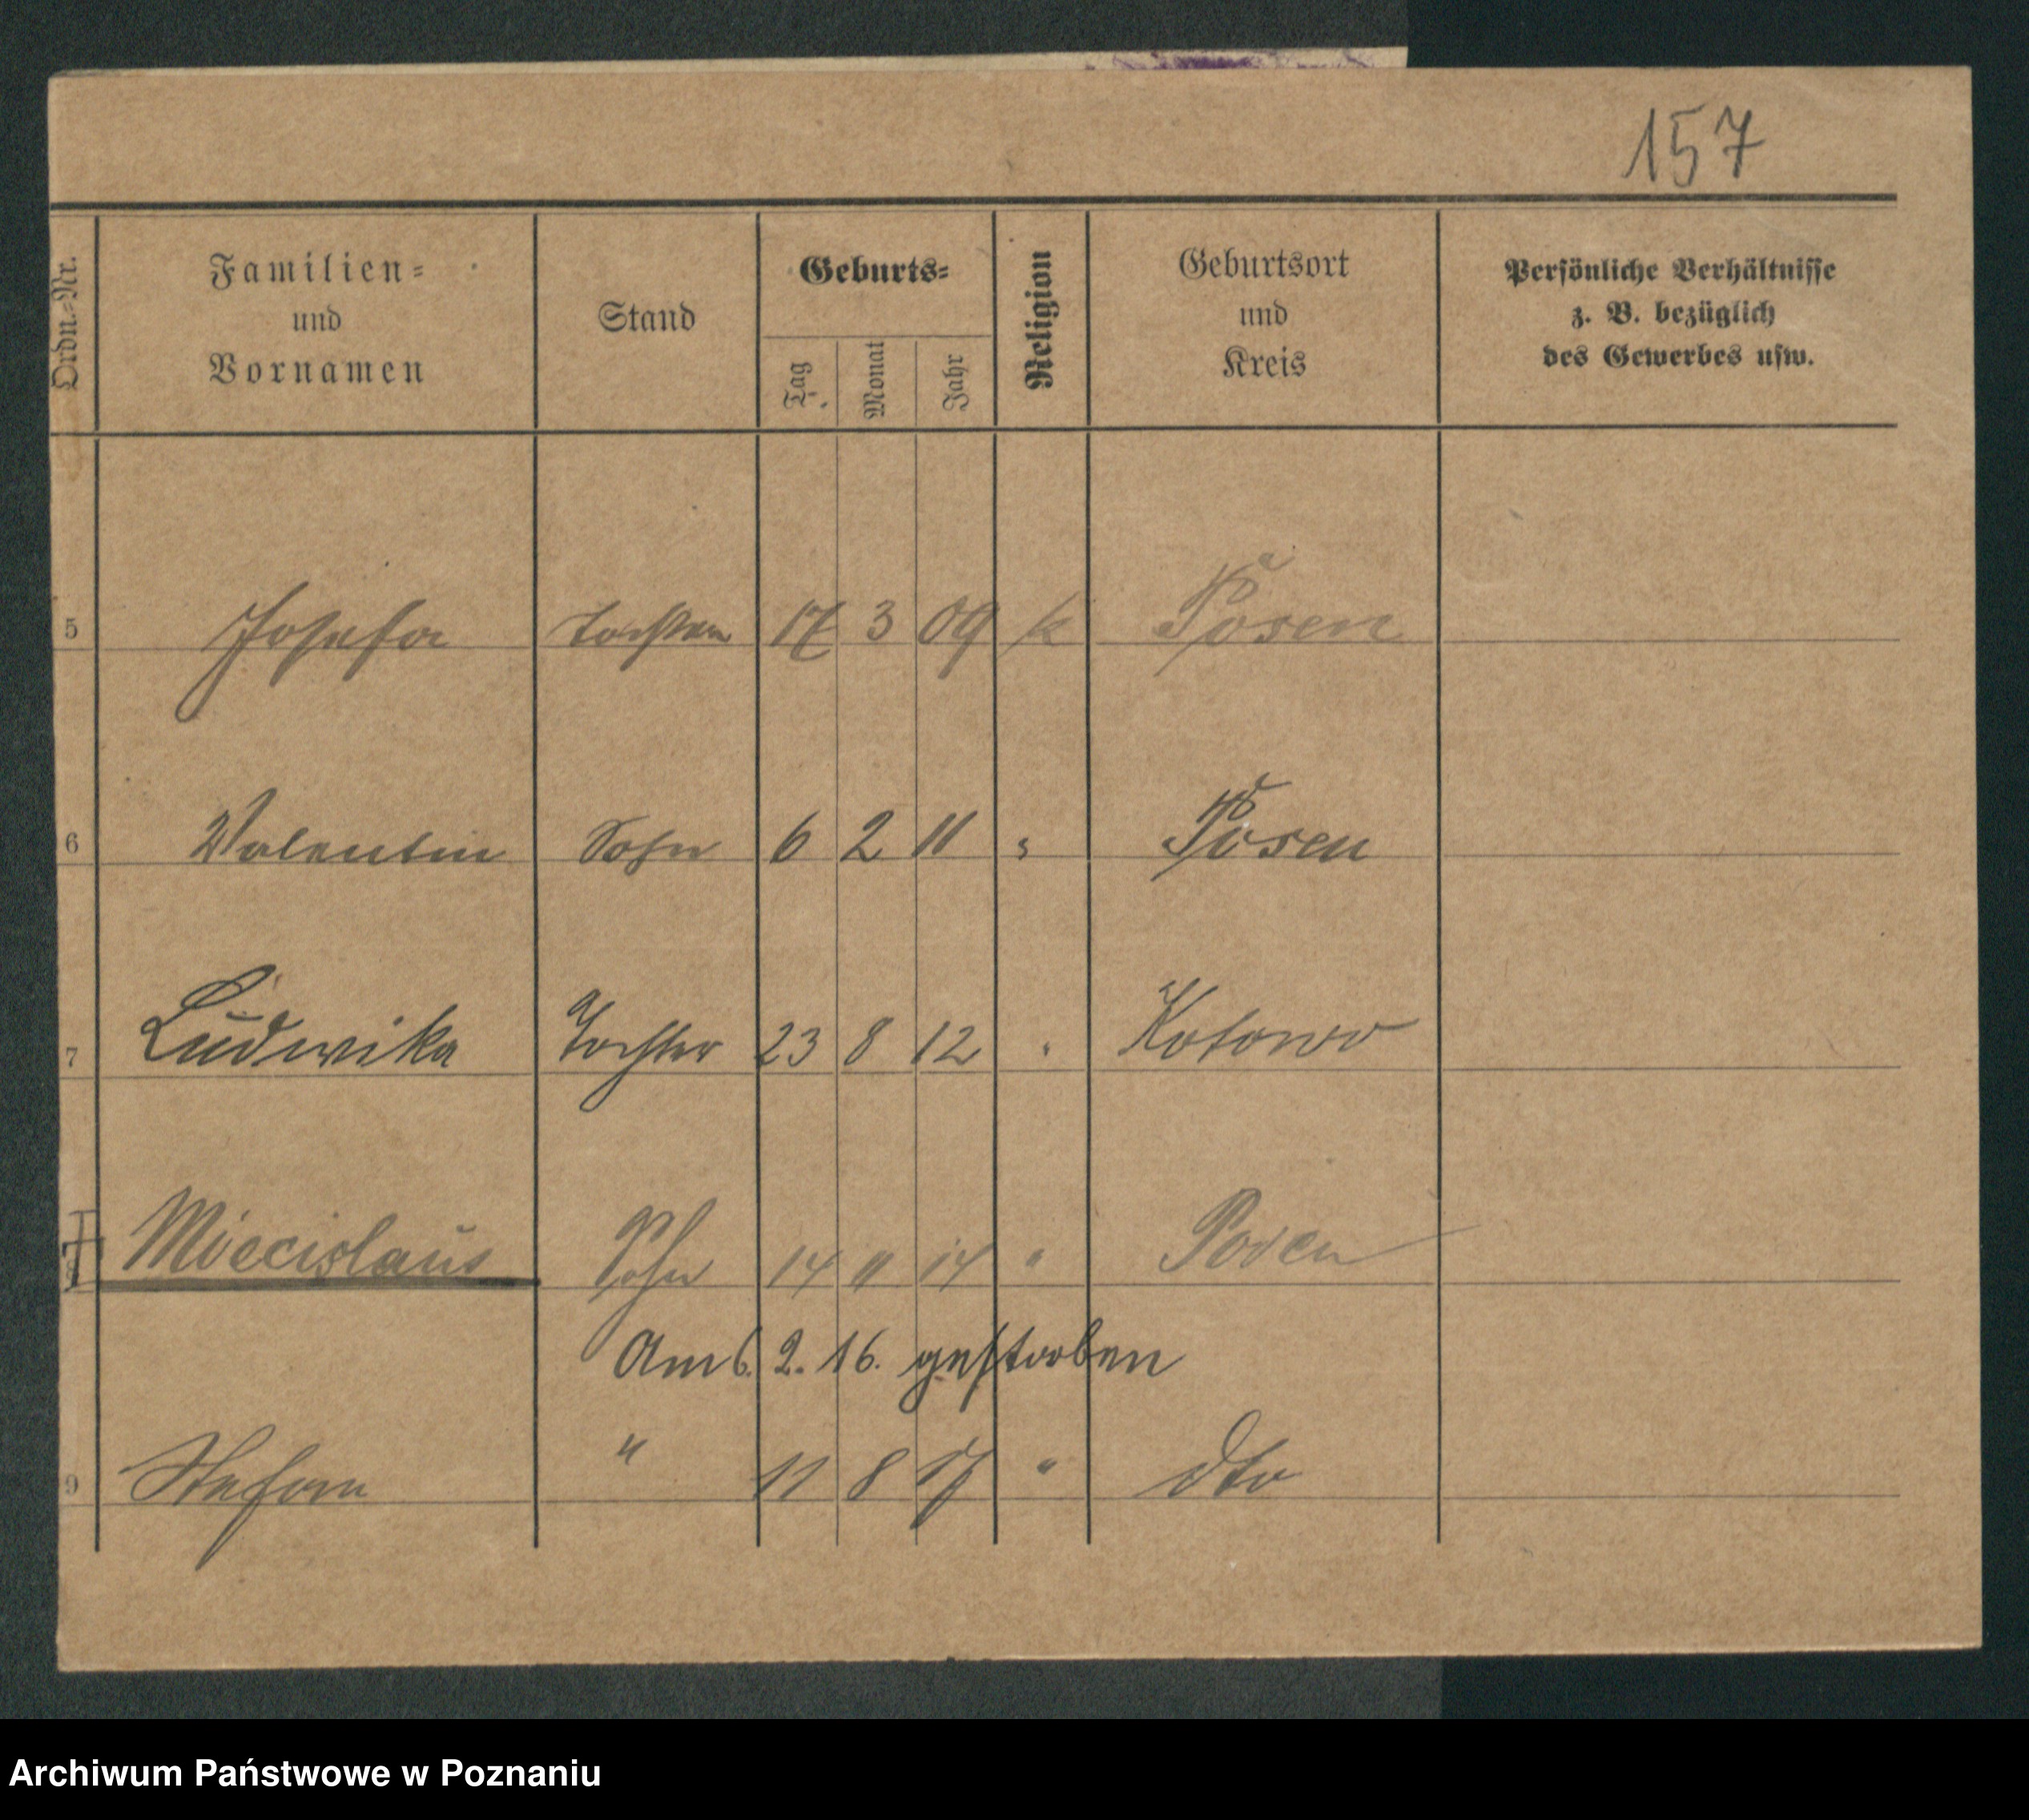 157
Ordn.-Nr.
Familien-
und
Vornamen
Stand
Geburts-
Tag
Monat
Jahr
Religion
Geburtsort
und
Kreis
Persönliche Verhältnisse
z. B. bezüglich
des Gewerbes usw.
5 Josefa Tochter 17 3 09 k Posen
6 Valentin Sohn 6 2 11 " Posen
7 Ludwika Tochter 23 8 12 " Kotowo
Miecislaus Sohn 14 11 14 " Posen
Am 6. 2. 16. gestorben
9 Stefan " 11 8 17 " dto
Archiwum Państwowe w Poznaniu